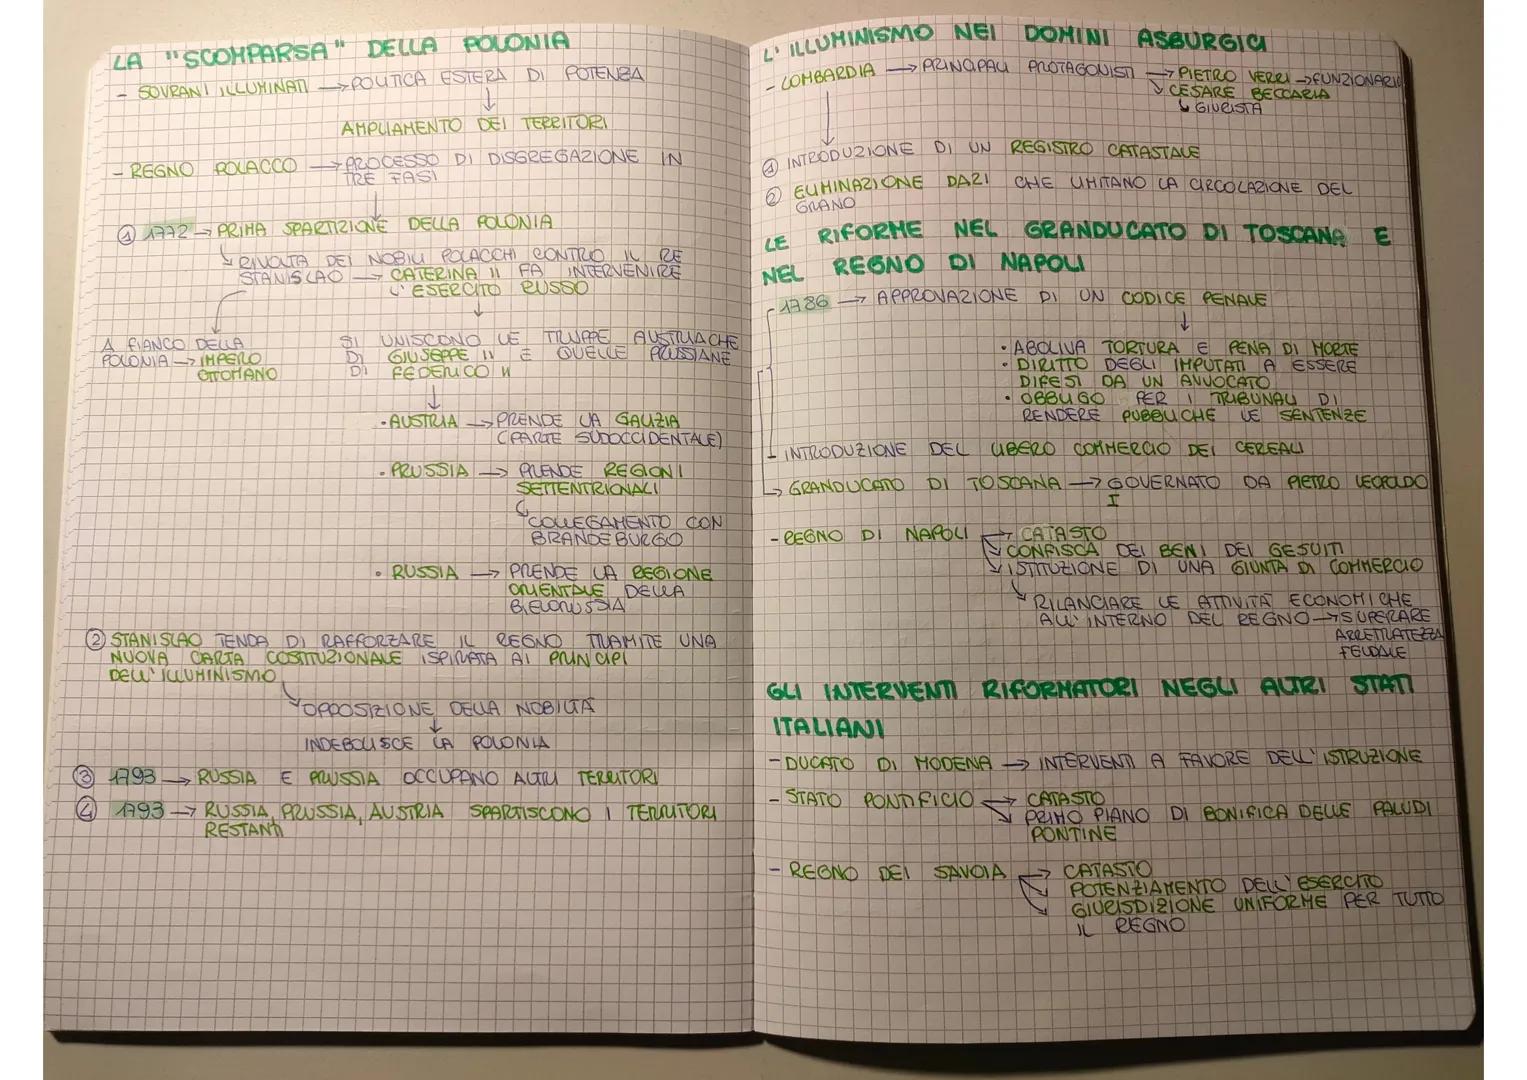 LA "SCOMPARSA" DELLA POLONIA
- SOVRANI ILLUMINATI → POLITICA ESTERA DI POTENZA
↓
AMPLIAMENTO DEI TERRITORI
- REGNO POLACCO → PROCESSO DI DISGREGAZIONE IN
TRE FASI
① 1772 → PRIMA SPARTIZIONE DELLA POLONIA
↳ RIVOLTA DEI NOBILI POLACCHI CONTRO IL RE
STANISLAO → CATERINA II FA INTERVENIRE
L'ESERCITO RUSSO
A FIANCO DELLA
POLONIA → IMPERO
OTTOMANO
SI UNISCONO LE TRUPPE AUSTRIACHE
DI GIUSEPPE II E QUELLE PRUSSIANE
DI FEDERICO II
• AUSTRIA → PRENDE LA GALIZIA
(PARTE SUDOCCIDENTALE)
• PRUSSIA → PRENDE REGIONI
SETTENTRIONALI
↳ COLLEGAMENTO CON
BRANDEBURGO
• RUSSIA → PRENDE LA REGIONE
ORIENTALE DELLA
BIELORUSSIA
② STANISLAO TENDA DI RAFFORZARE IL REGNO TRAMITE UNA
NUOVA CARTA COSTITUZIONALE ISPIRATA AI PRINCIPI
DELL'ILLUMINISMO
↳ OPPOSIZIONE DELLA NOBILTÀ
↓
INDEBOLISCE LA POLONIA
③ 1793 → RUSSIA E PRUSSIA OCCUPANO ALTRI TERRITORI
④ 1793 → RUSSIA, PRUSSIA, AUSTRIA SPARTISCONO I TERRITORI
RESTANTI
L'ILLUMINISMO NEI DOMINI ASBURGICI
- LOMBARDIA → PRINCIPALI PROTAGONISTI → PIETRO VERRI → FUNZIONARIO
↘ CESARE BECCARIA
↳ GIURISTA
① INTRODUZIONE DI UN REGISTRO CATASTALE
② ELIMINAZIONE DAZI CHE LIMITANO LA CIRCOLAZIONE DEL
GRANO
LE RIFORME NEL GRANDUCATO DI TOSCANA E
NEL REGNO DI NAPOLI
- 1786 → APPROVAZIONE DI UN CODICE PENALE
↓
• ABOLIVA TORTURA E PENA DI MORTE
• DIRITTO DEGLI IMPUTATI A ESSERE
DIFESI DA UN AVVOCATO
• OBBLIGO PER I TRIBUNALI DI
RENDERE PUBBLICHE LE SENTENZE
- INTRODUZIONE DEL LIBERO COMMERCIO DEI CEREALI
→ GRANDUCATO DI TOSCANA → GOVERNATO DA PIETRO LEOPOLDO
I
- REGNO DI NAPOLI → CATASTO
↘ CONFISCA DEI BENI DEI GESUITI
↘ ISTITUZIONE DI UNA GIUNTA DI COMMERCIO
↳ RILANCIARE LE ATTIVITÀ ECONOMICHE
ALL'INTERNO DEL REGNO → SUPERARE
ARRETRATEZZA
FEUDALE
GLI INTERVENTI RIFORMATORI NEGLI ALTRI STATI
ITALIANI
- DUCATO DI MODENA → INTERVENTI A FAVORE DELL'ISTRUZIONE
- STATO PONTIFICIO → CATASTO
↘ PRIMO PIANO DI BONIFICA DELLE PALUDI
PONTINE
- REGNO DEI SAVOIA → CATASTO
↘ POTENZIAMENTO DELL'ESERCITO
↘ GIURISDIZIONE UNIFORME PER TUTTO
IL REGNO